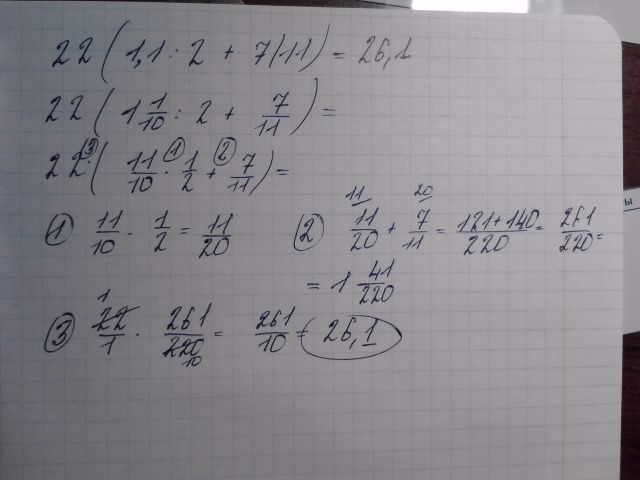 22 ( 1,1 : 2 + 7/11 ) = 26,1
22 ( 1 1/10 : 2 + 7/11 ) =
22 ③ · ( 11/10 ① · 1/2 ② + 7/11 ) =
① 11/10 · 1/2 = 11/20 ② 11/20 (11) + 7/11 (20) = 121+140/220 = 261/220 =
= 1 41/220
③ 22/1 (1) · 261/220 (10) = 261/10 = 26,1
ы